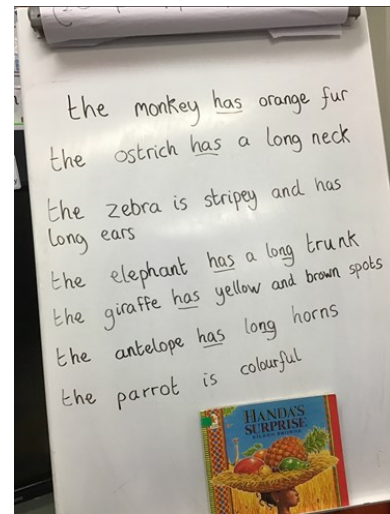 the monkey has orange fur
the ostrich has a long neck
the zebra is stripey and has
long ears
the elephant has a long trunk
the giraffe has yellow and brown spots
the antelope has long horns
the parrot is colourful
HANDA'S
SURPRISE
EILEEN BROWNE